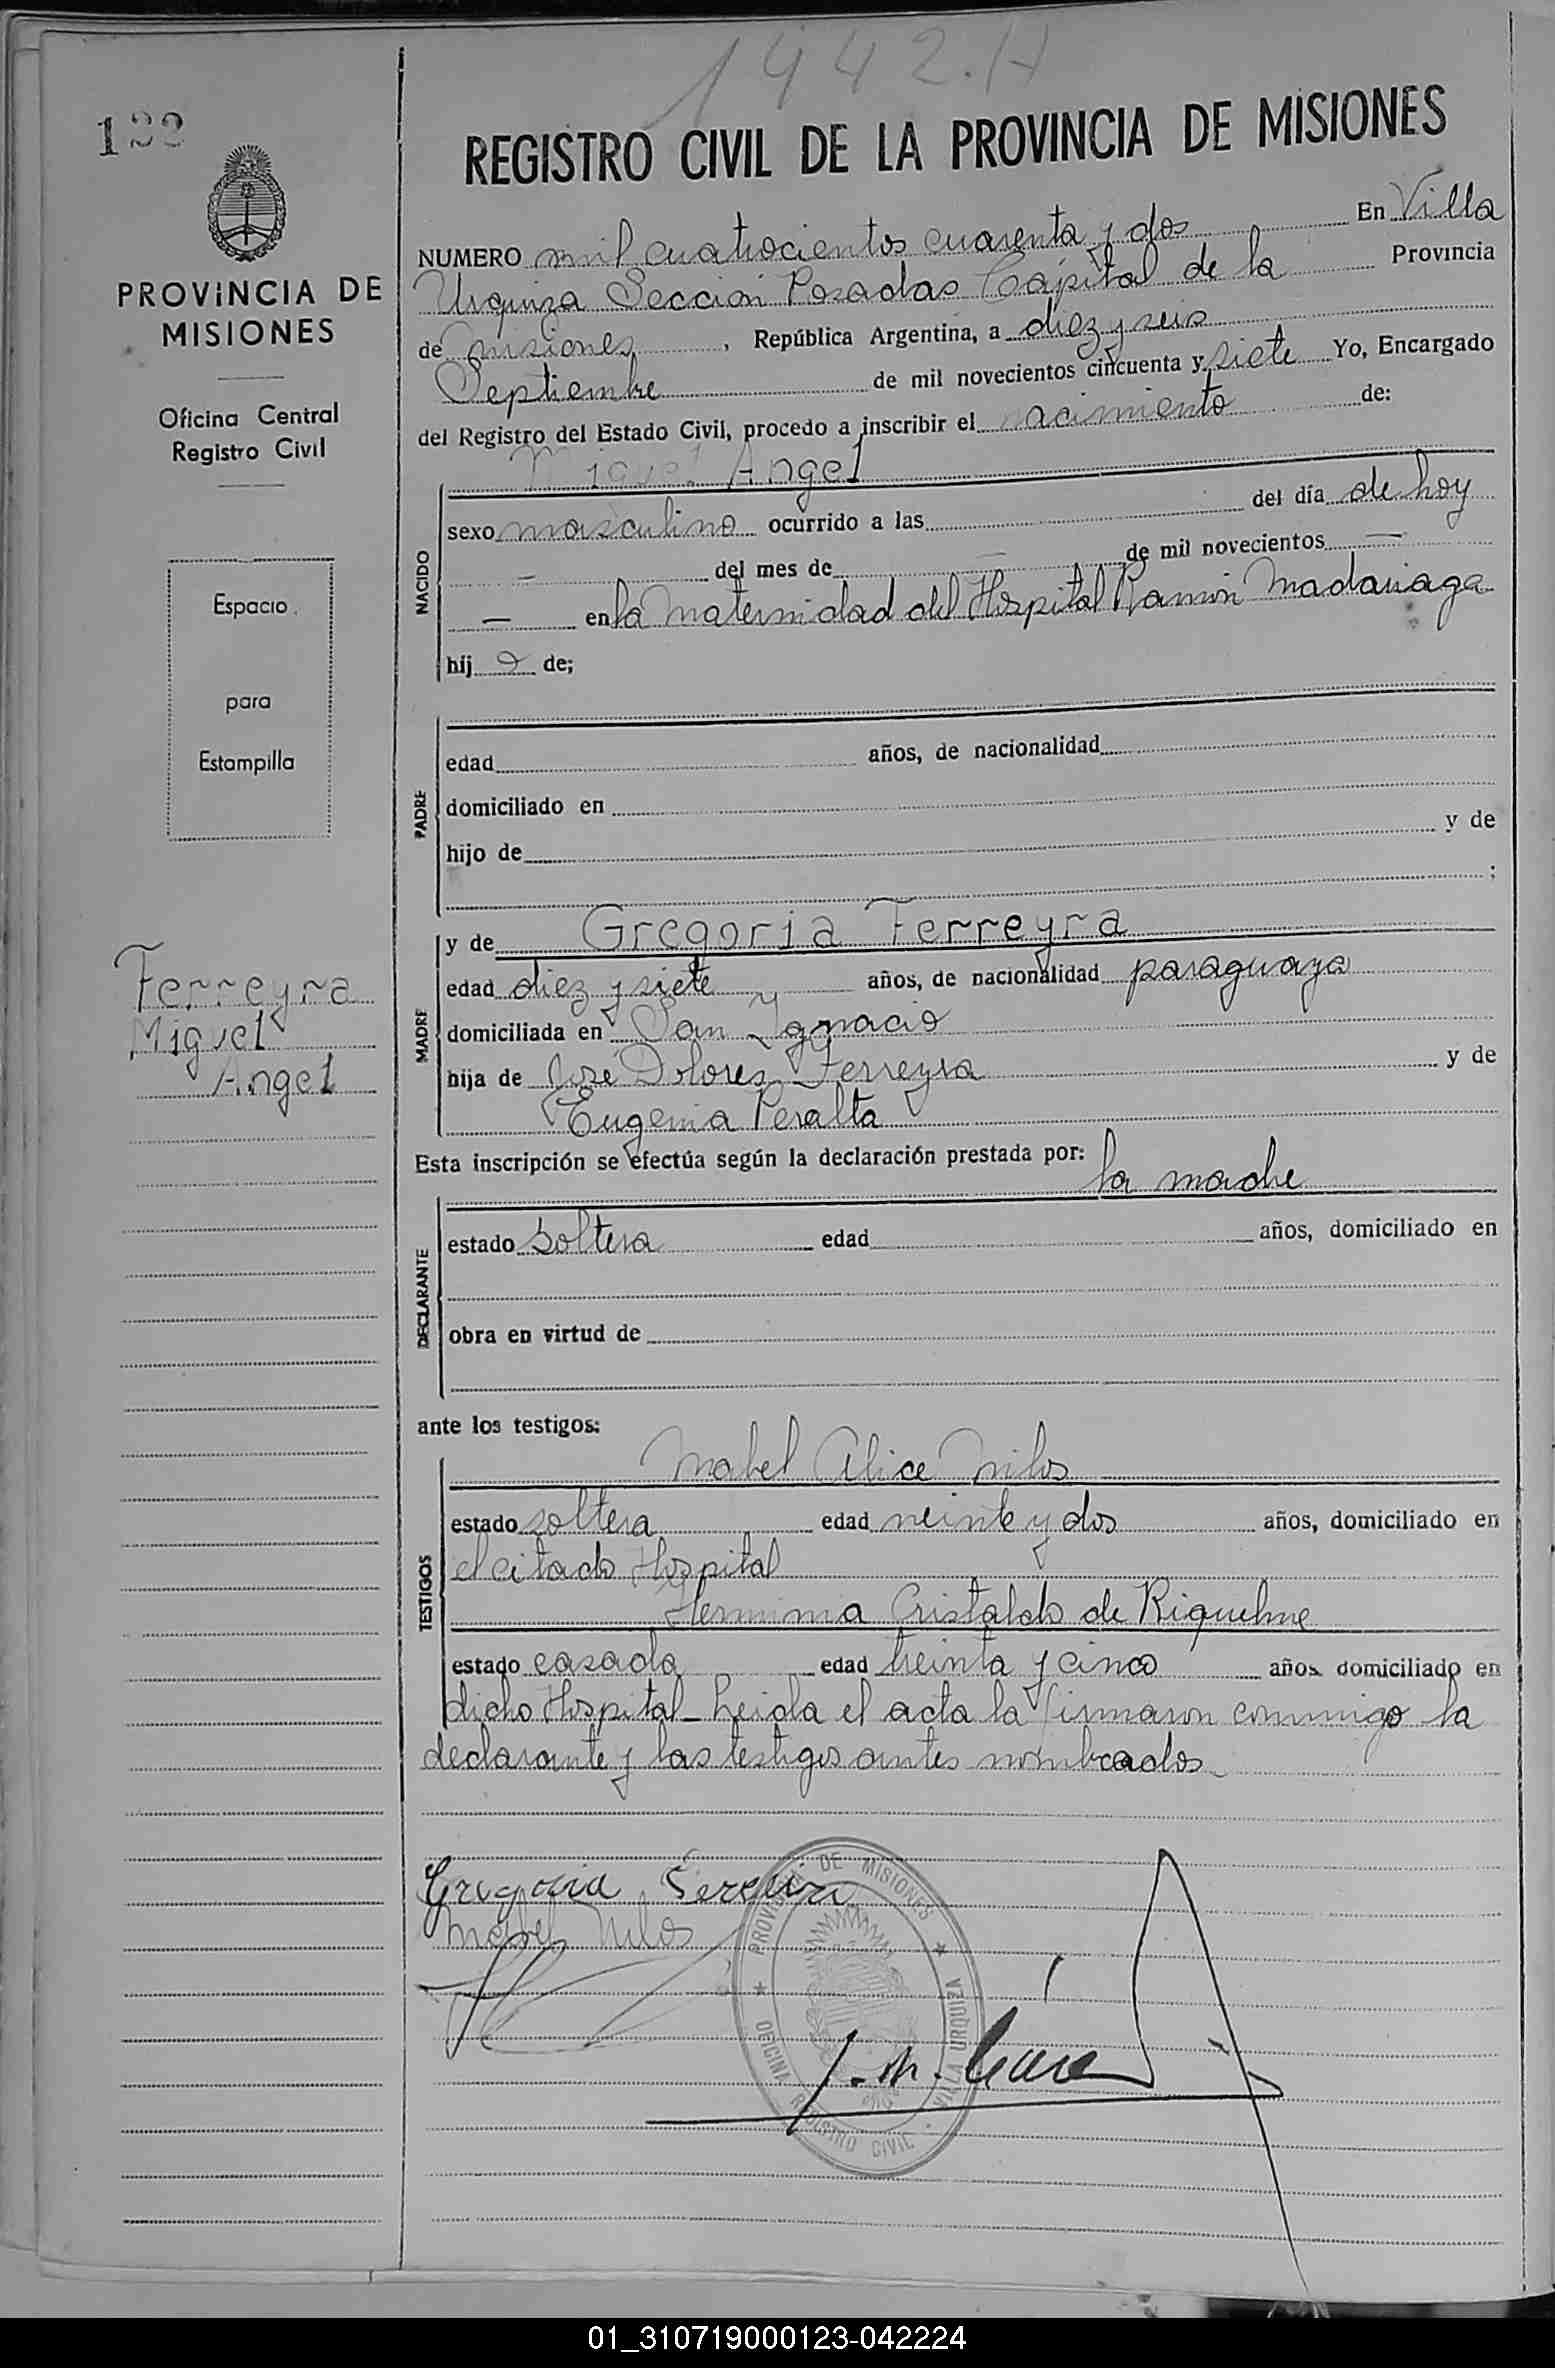 1442.H
REGISTRO CIVIL DE LA PROVINCIA DE MISIONES
PROVINCIA DE
MISIONES
Oficina Central
Registro Civil
Espacio
para
Estampilla
Ferreyra
Miguel
Angel
NUMERO mil cuatrocientos cuarenta y dos En Villa
Urquiza Sección Posadas Capital de la Provincia
de Misiones, República Argentina, a diez y seis
Septiembre de mil novecientos cincuenta y siete Yo, Encargado
del Registro del Estado Civil, procedo a inscribir el nacimiento de:
Miguel Angel
NACIDO
sexo masculino ocurrido a las del día de hoy
— del mes de — de mil novecientos —
— en la Maternidad del Hospital Ramón Madariaga
hij o de;
PADRE
edad años, de nacionalidad
domiciliado en
hijo de y de
;
MADRE
y de Gregoria Ferreyra
edad diez y siete años, de nacionalidad paraguaya
domiciliada en San Ygnacio
hija de José Dolores Ferreyra y de
Eugenia Peralta
Esta inscripción se efectúa según la declaración prestada por:
la madre
DECLARANTE
estado soltera edad años, domiciliado en
obra en virtud de
ante los testigos:
TESTIGOS
Mabel Alice Milos
estado soltera edad veinte y dos años, domiciliado en
el citado Hospital
Herminia Cristaldo de Riquelme
estado casada edad treinta y cinco años domiciliado en
dicho Hospital_ Leida el acta la firmaron conmigo la
declarante y las testigos antes nombrados_
Gregoria
PROVINCIA DE MISIONES
OFICINA REGISTRO CIVIL
VILLA URQUIZA
01_310719000123-042224